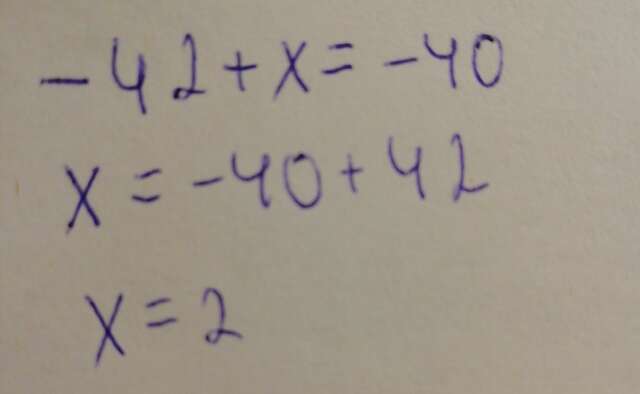 -42+x=-40
x=-40+42
x=2